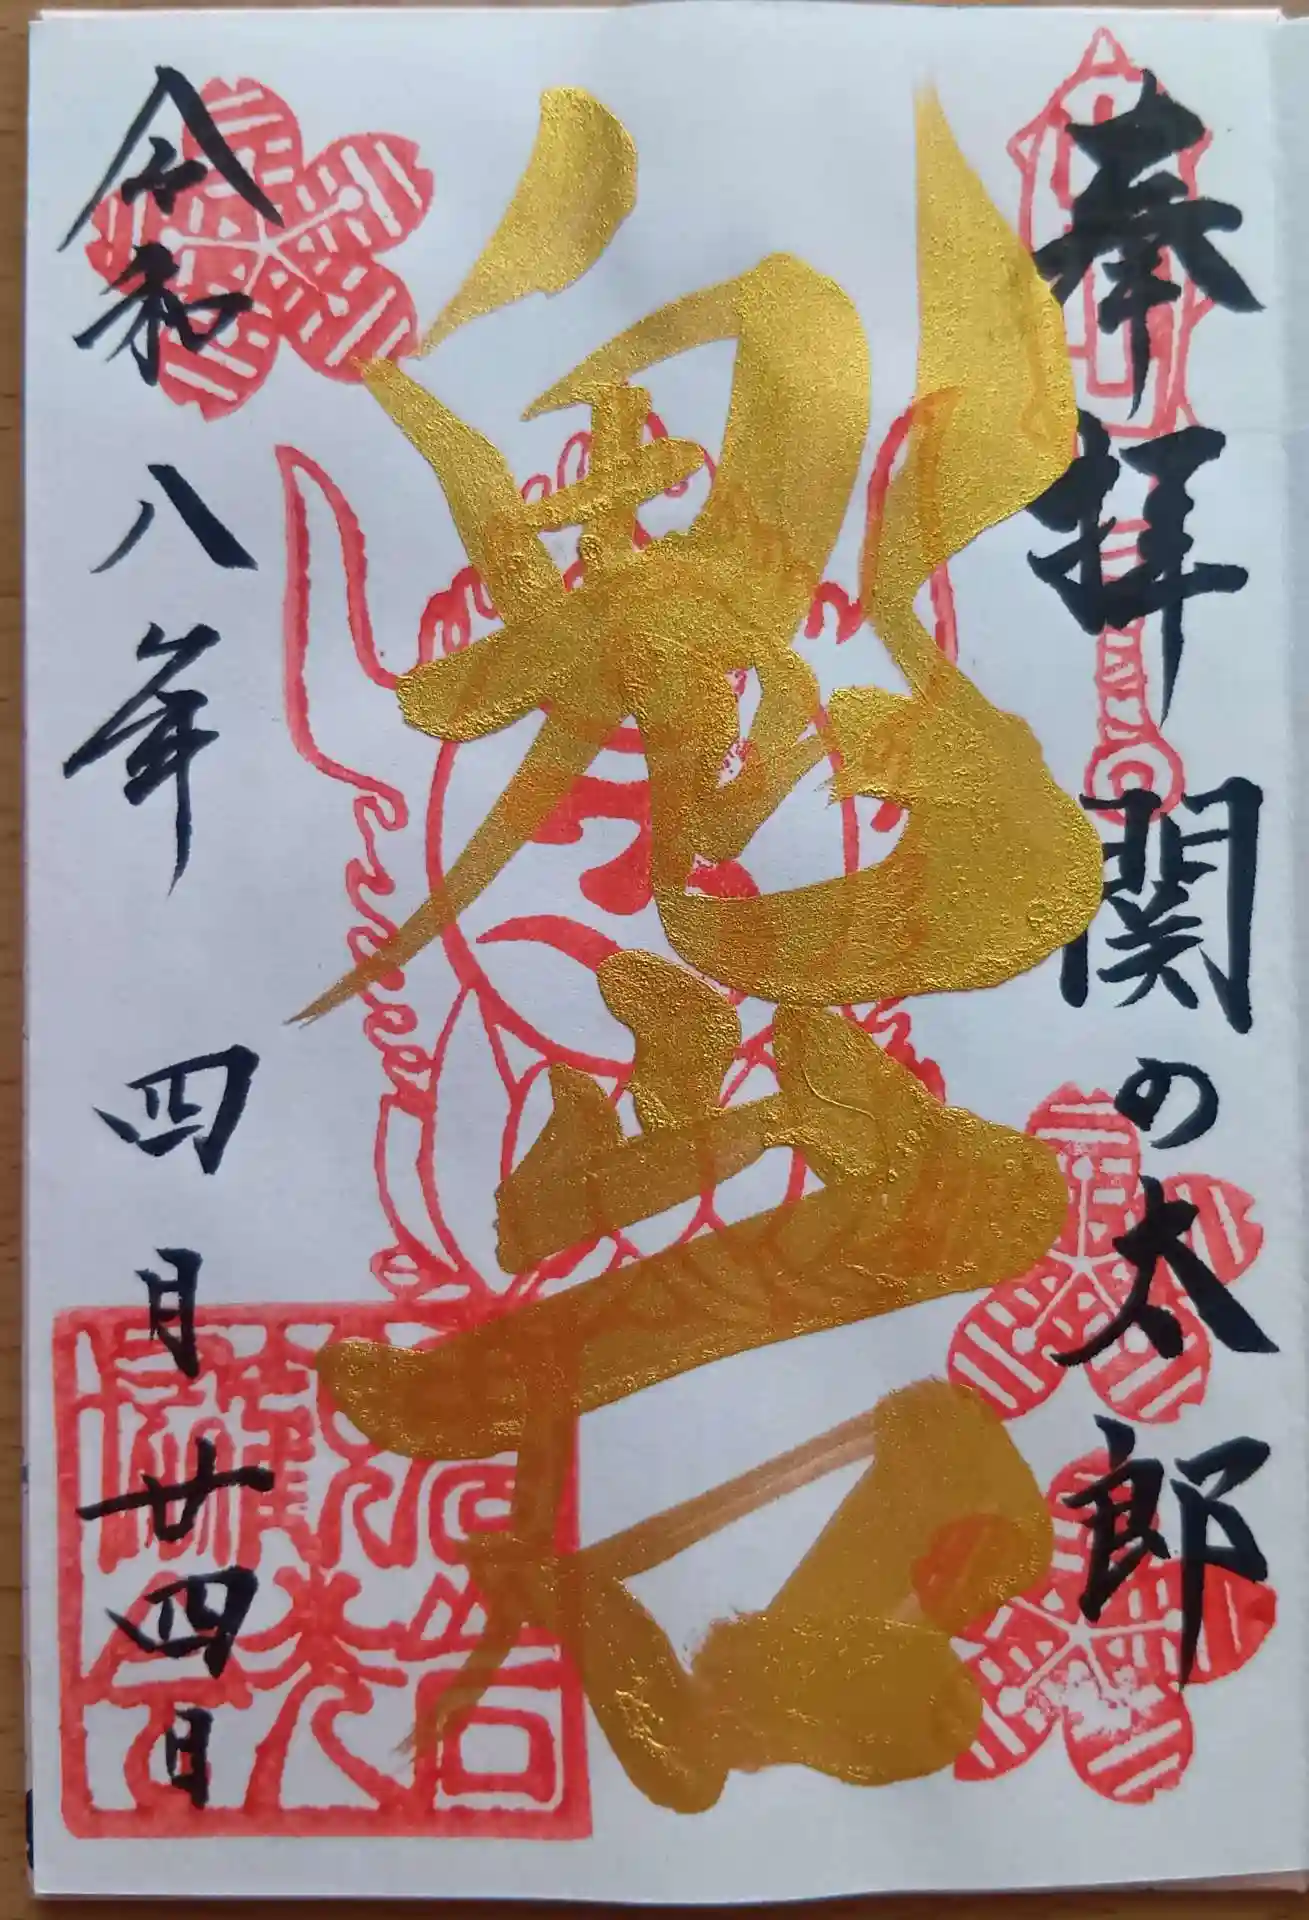 奉拝 関の太郎
鬼岩
令和八年 四月廿四日